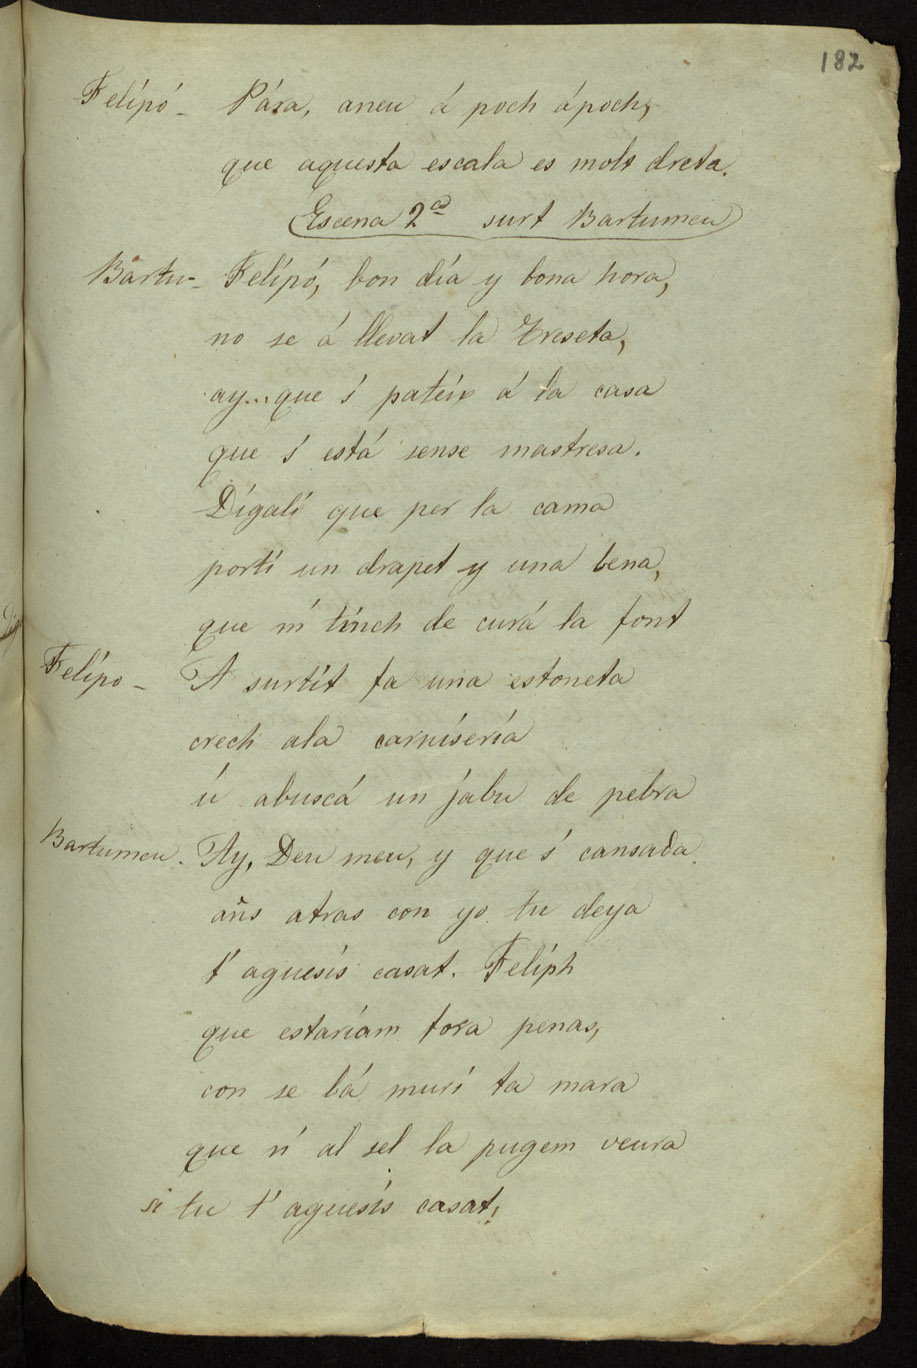 182
Felipó - Pára, aneu á poch ápoch,
que aquesta escala es molt dreta.
Escena 2ª surt Bartumeu
Bartu - Felipó, bon día y bona hora,
no se á llevat la Treseta,
ay... que s' pateix á la casa
que s' está sense mastresa.
Digali que per la cama
porti un drapet y una bena,
que m' tinch de curá la font
Felipo - A surtit fa una estoneta
crech ala carniseria
ú abuscá un jabu de pebra
Bartumeu. Ay, Deu meu, y que s' cansada
añs atras con yo tu deya
t' aguesis casat. Feliph
que estariam fora penas,
con se bá muri ta mara
que n' al sel la pugem veura
si tu t' aguesis casat,